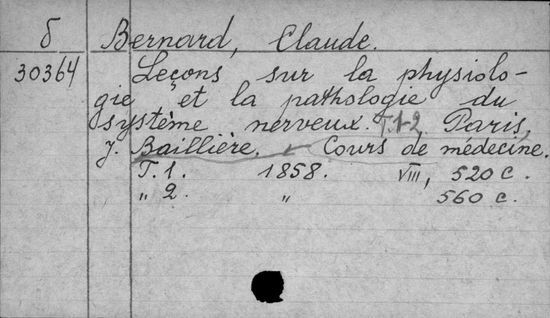 б Bernard, Claude.
30364 Leçons sur la physiolo-
gie et la pathologie du
système nerveux. T.1-2, Paris,
J. Baillière. Cours de médecine.
T. 1. 1858. VIII, 520 c.
„ 2. „ 560 c.